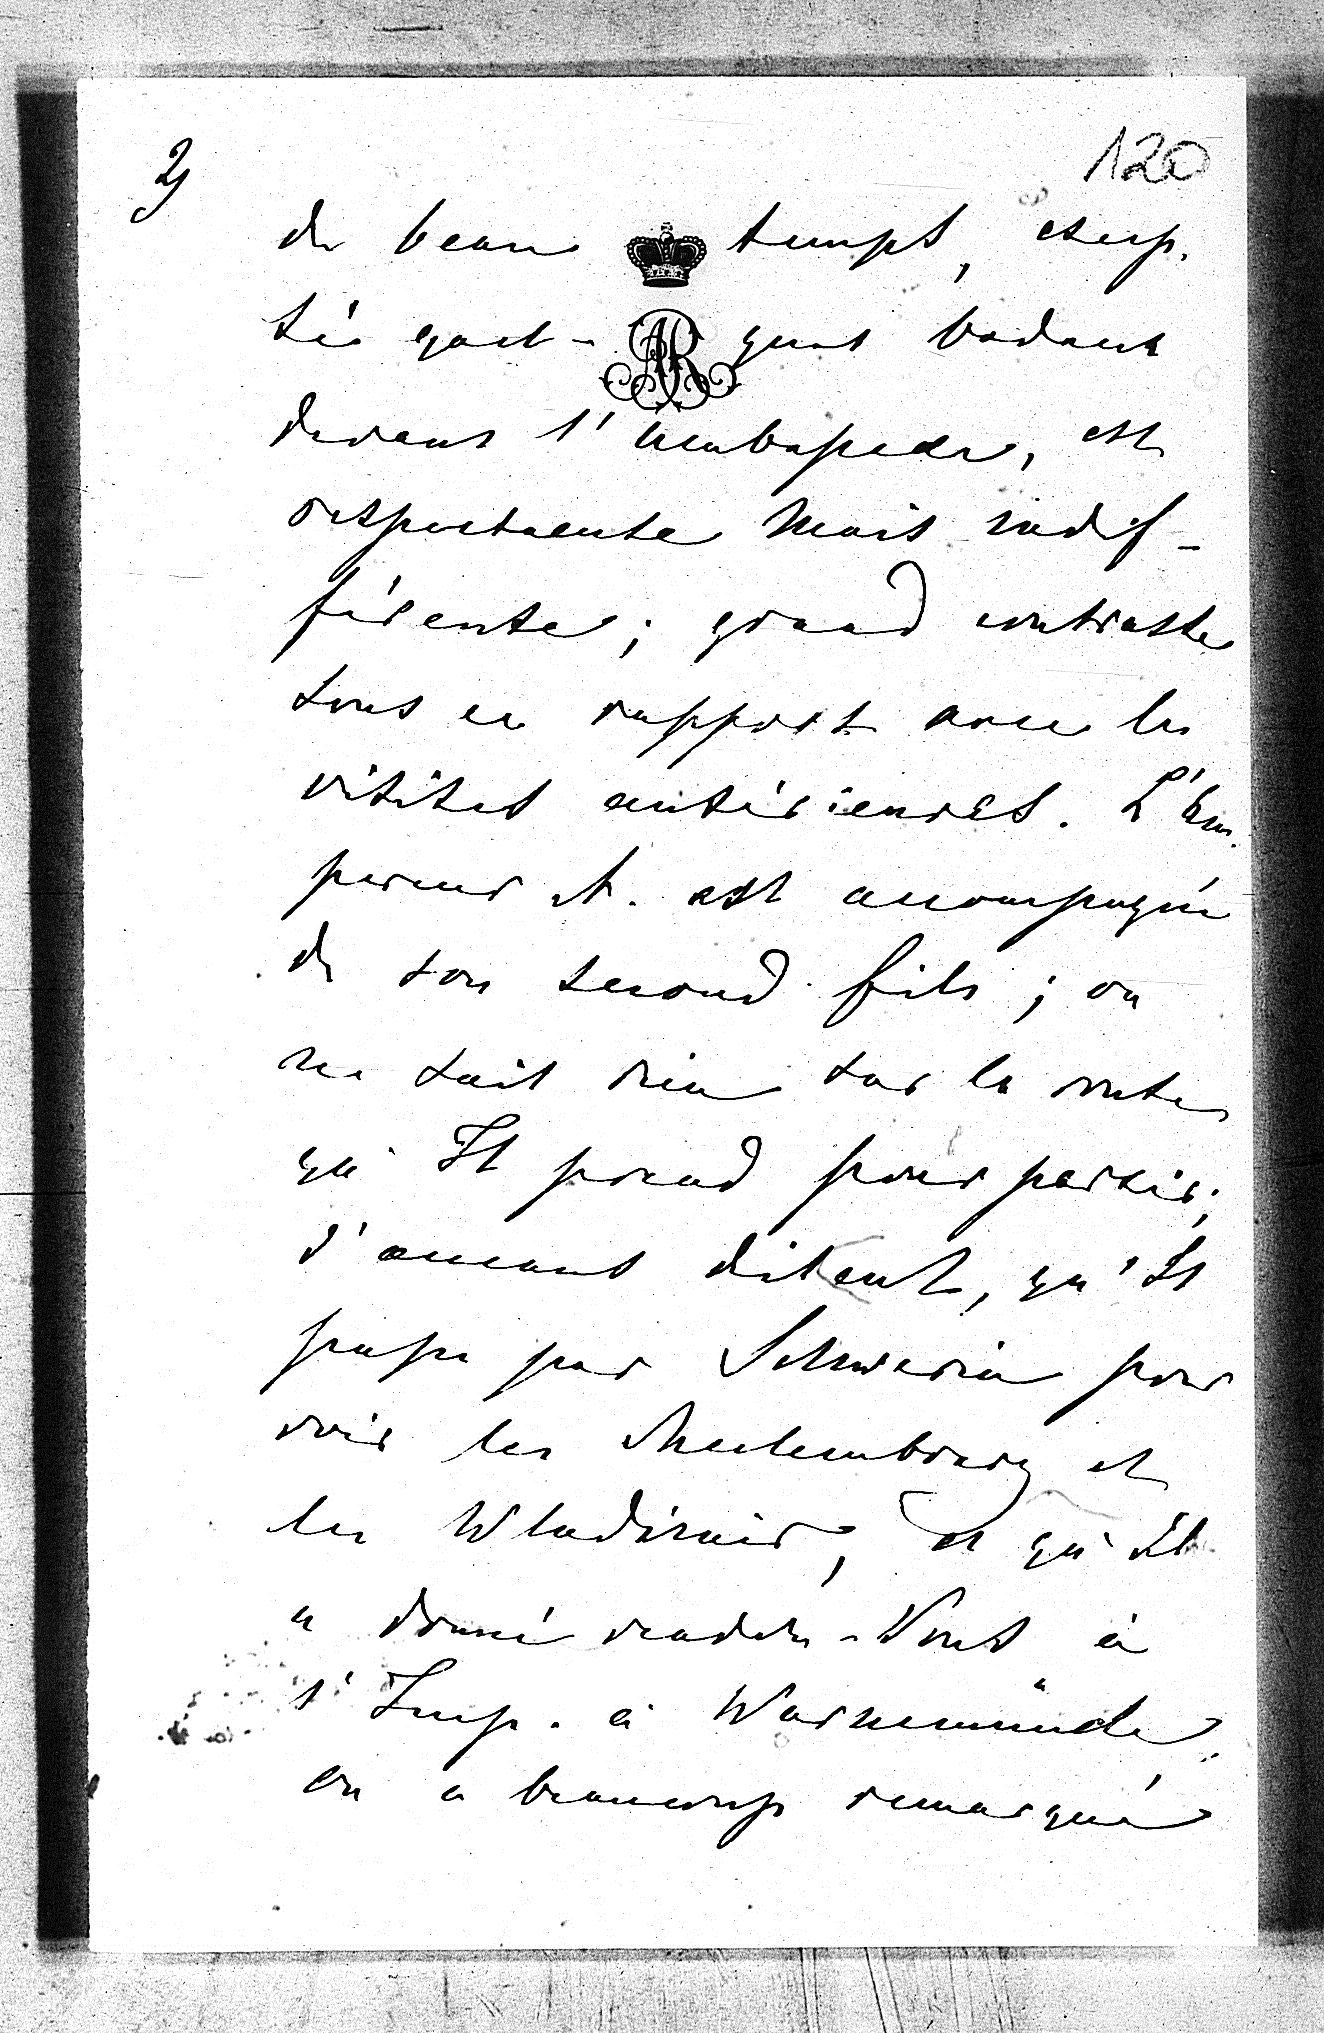 2)
120
de beau temps, excep-
té quel-ques badauds
devant l'ambassade, est
respectueuse mais indif-
férente; grand contraste
sous ce rapport avec les
visites antérieures. L'Em-
pereur A. est accompagné
de son second fils; on
ne sait rien sur la route
qu'Il prend pour partir;
d'aucuns disent, qu'Il
passe par Schwerin pour
voir les Meclembourg et
les Wladimir, et qu'Il
a donné rendez-Vous à
l'Imp. à Warnemünde.
on a beaucoup remarqué